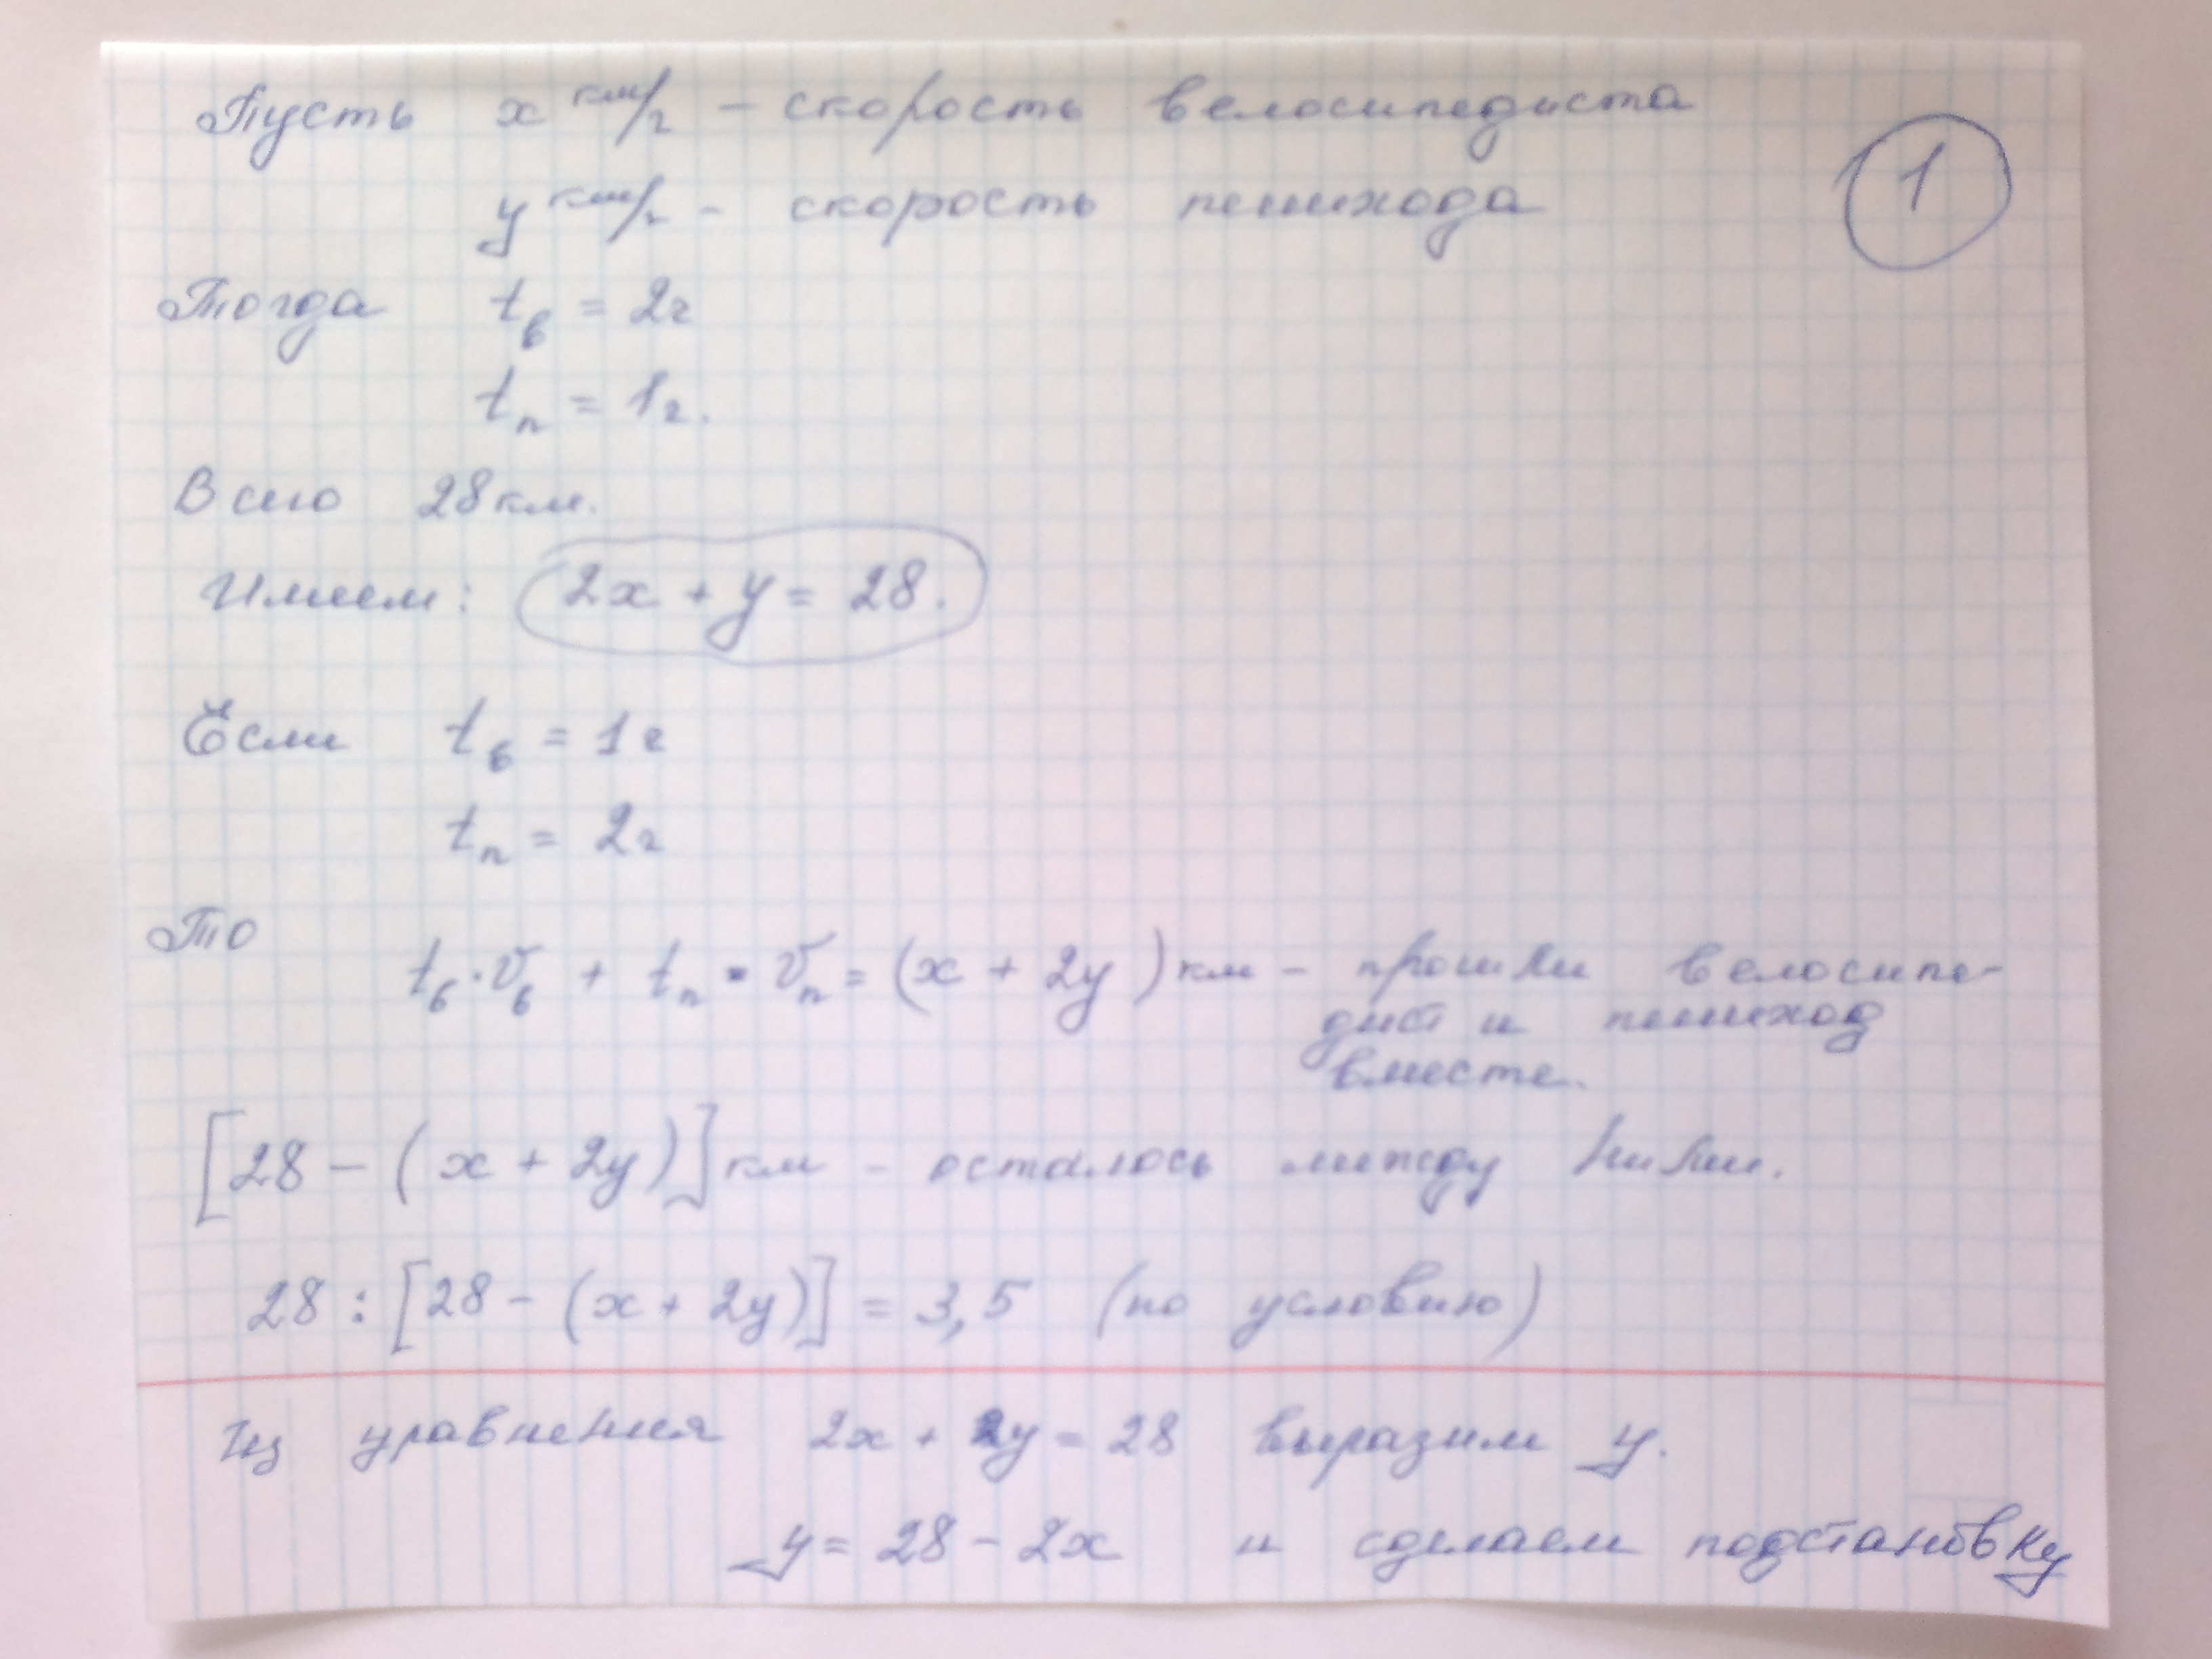 Пусть x км/ч – скорость велосипедиста
1
y км/ч – скорость пешехода
Тогда t в = 2ч
t п = 1ч.
Всего 28 км.
Имеем: 2x + y = 28.
Если t в = 1ч
t п = 2ч
То
t в · v в + t п · v п = (x + 2y) км – прошли велосипе-
дист и пешеход
вместе.
[28 – (x + 2y)] км – осталось между ними.
28 : [28 – (x + 2y)] = 3,5 (по условию)
Из уравнения 2x + 2y = 28 выразим y.
y = 28 – 2x и сделаем подстановку